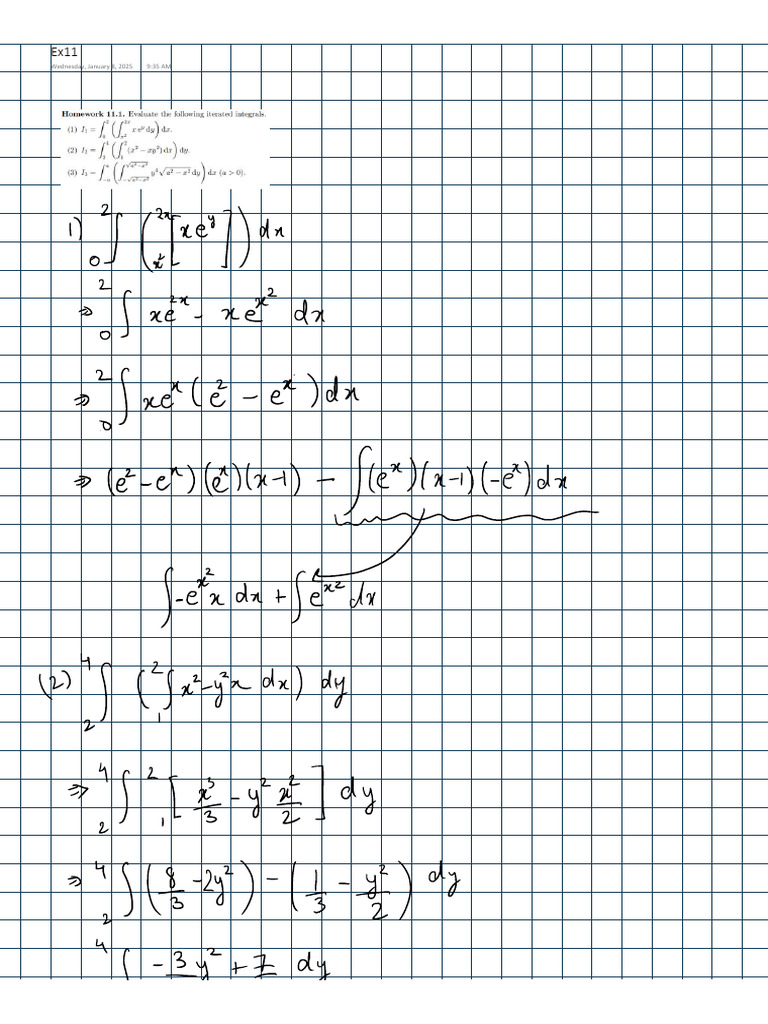 Ex11
Wednesday, January 8, 2025 9:35 AM
Homework 11.1. Evaluate the following iterated integrals.
(1) I₁ = ∫₀² (∫_{x²}^{2x} x e^y dy) dx.
(2) I₂ = ∫₂⁴ (∫₁² (x² − xy²) dx) dy.
(3) I₃ = ∫_{−a}^{a} (∫_{−√(a²−x²)}^{√(a²−x²)} y⁴ √(a² − x²) dy) dx (a > 0).
1) ₀²∫ (_{x²}^{2x}[xe^y]) dx
⇒ ₀²∫ xe^{2x} - xe^{x²} dx
⇒ ₀²∫ xe^x (e² - e^x) dx
⇒ (e² - e^x)(e^x)(x-1) - ∫(e^x)(x-1)(-e^x) dx
∫-e^{x²} x dx + ∫e^{x2} dx
(2) ₂⁴∫ (₁²∫ x² - y²x dx) dy
⇒ ₂⁴∫ ₁²[x³/3 - y² x²/2] dy
⇒ ₂⁴∫ (8/3 - 2y²) - (1/3 - y²/2) dy
⁴∫ -3 y² + 7 dy